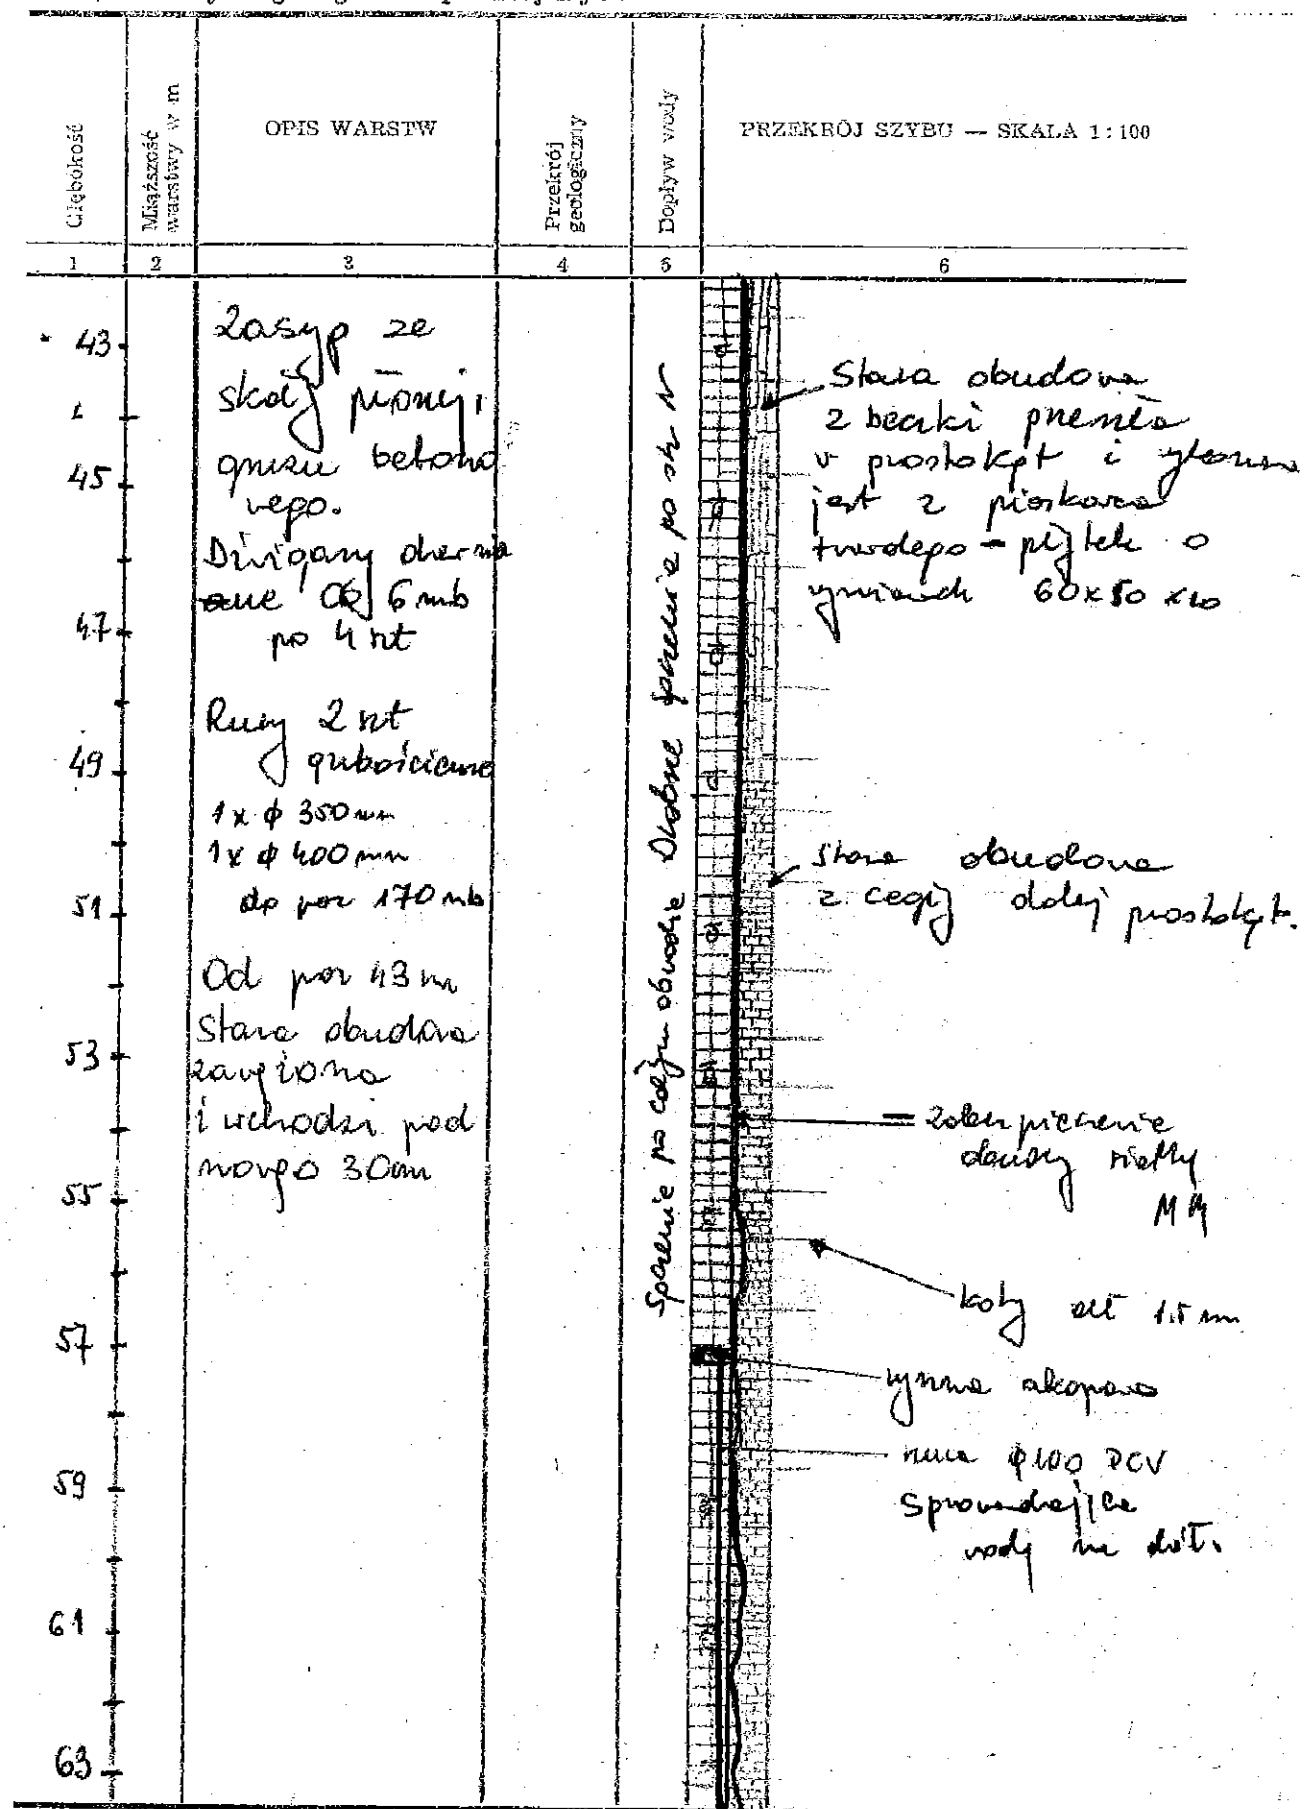 Głębokość
Miąższość
warstwy w m
OPIS WARSTW
Przekrój
geologiczny
Dopływ wody
PRZEKRÓJ SZYBU — SKALA 1:100
1 2 3 4 5 6
43
45
47
49
51
53
55
57
59
61
63
Zasyp ze
skały płonej,
gruzu betono
wego.
Dźwigary
6 mb
po 4 szt
Rury 2 szt
grubościenne
1 x ϕ 350 mm
1 x ϕ 400 mm
do 170 mb
Od 43 m
Stara obudowa
i wchodzi pod
30 cm
Spoenie po całym obwodzie Drobne spoenie po str N
Stara obudowa
z beczki
w prostokąt i
jest z piaskowca
twardego – płytek o
60x50x10
Stara obudowa
z cegły dalej prostokąt.
= zabezpieczenie
siatką
MM
kotwy
rynna okapowa
rura ϕ100 PCV
sprowadzająca
wodę na dół.